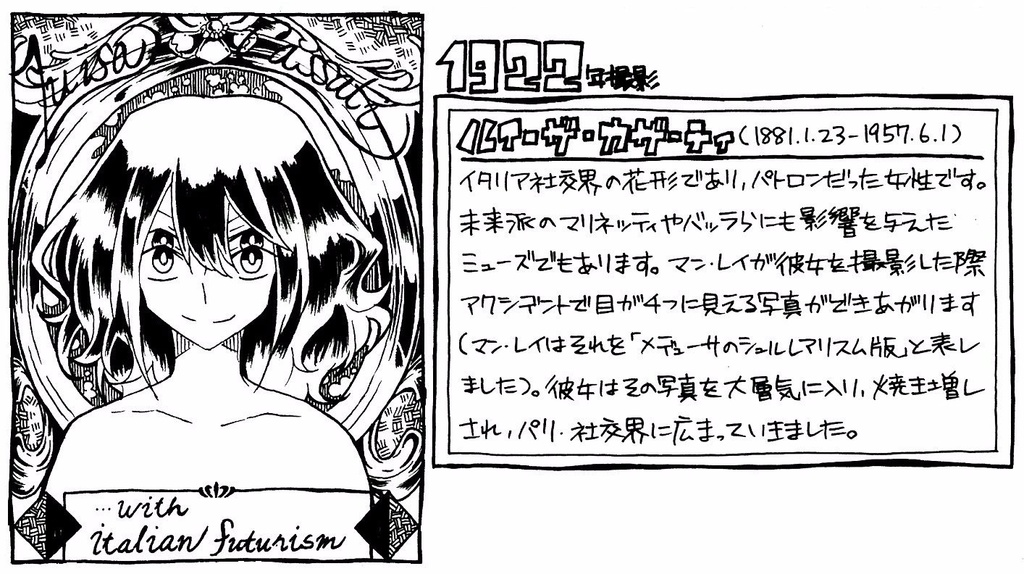 Luisa Casati
...with
italian futurism
1922年撮影
ルイ・ザ・カザーティ(1881.1.23-1957.6.1)
イタリア社交界の花形であり、パトロンだった女性です。
未来派のマリネッティやバッラらにも影響を与えた
ミューズでもあります。マン・レイが彼女を撮影した際
アクシデントで目が4つに見える写真ができあがります
(マン・レイはそれを「メデューサのシュルレアリスム版」と表し
ました)。彼女はその写真を大層気に入り、焼き増し
され、パリ・社交界に広まっていきました。